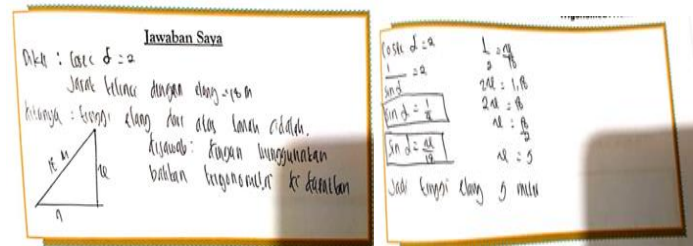 Jawaban Saya
Dikt : Cosec α = 2
Jarak kelinci dengan elang = 18 m
Ditanya : tinggi elang dari atas tanah adalah.
Dijawab: dengan menggunakan
trigonometri
18 m
x
Cosec α = 2
1/sin α = 2
sin α = 1/2
sin α = x/18
1/2 = x/18
2x = 1.18
2x = 18
x = 18/2
x = 9
Jadi tinggi elang 9 meter